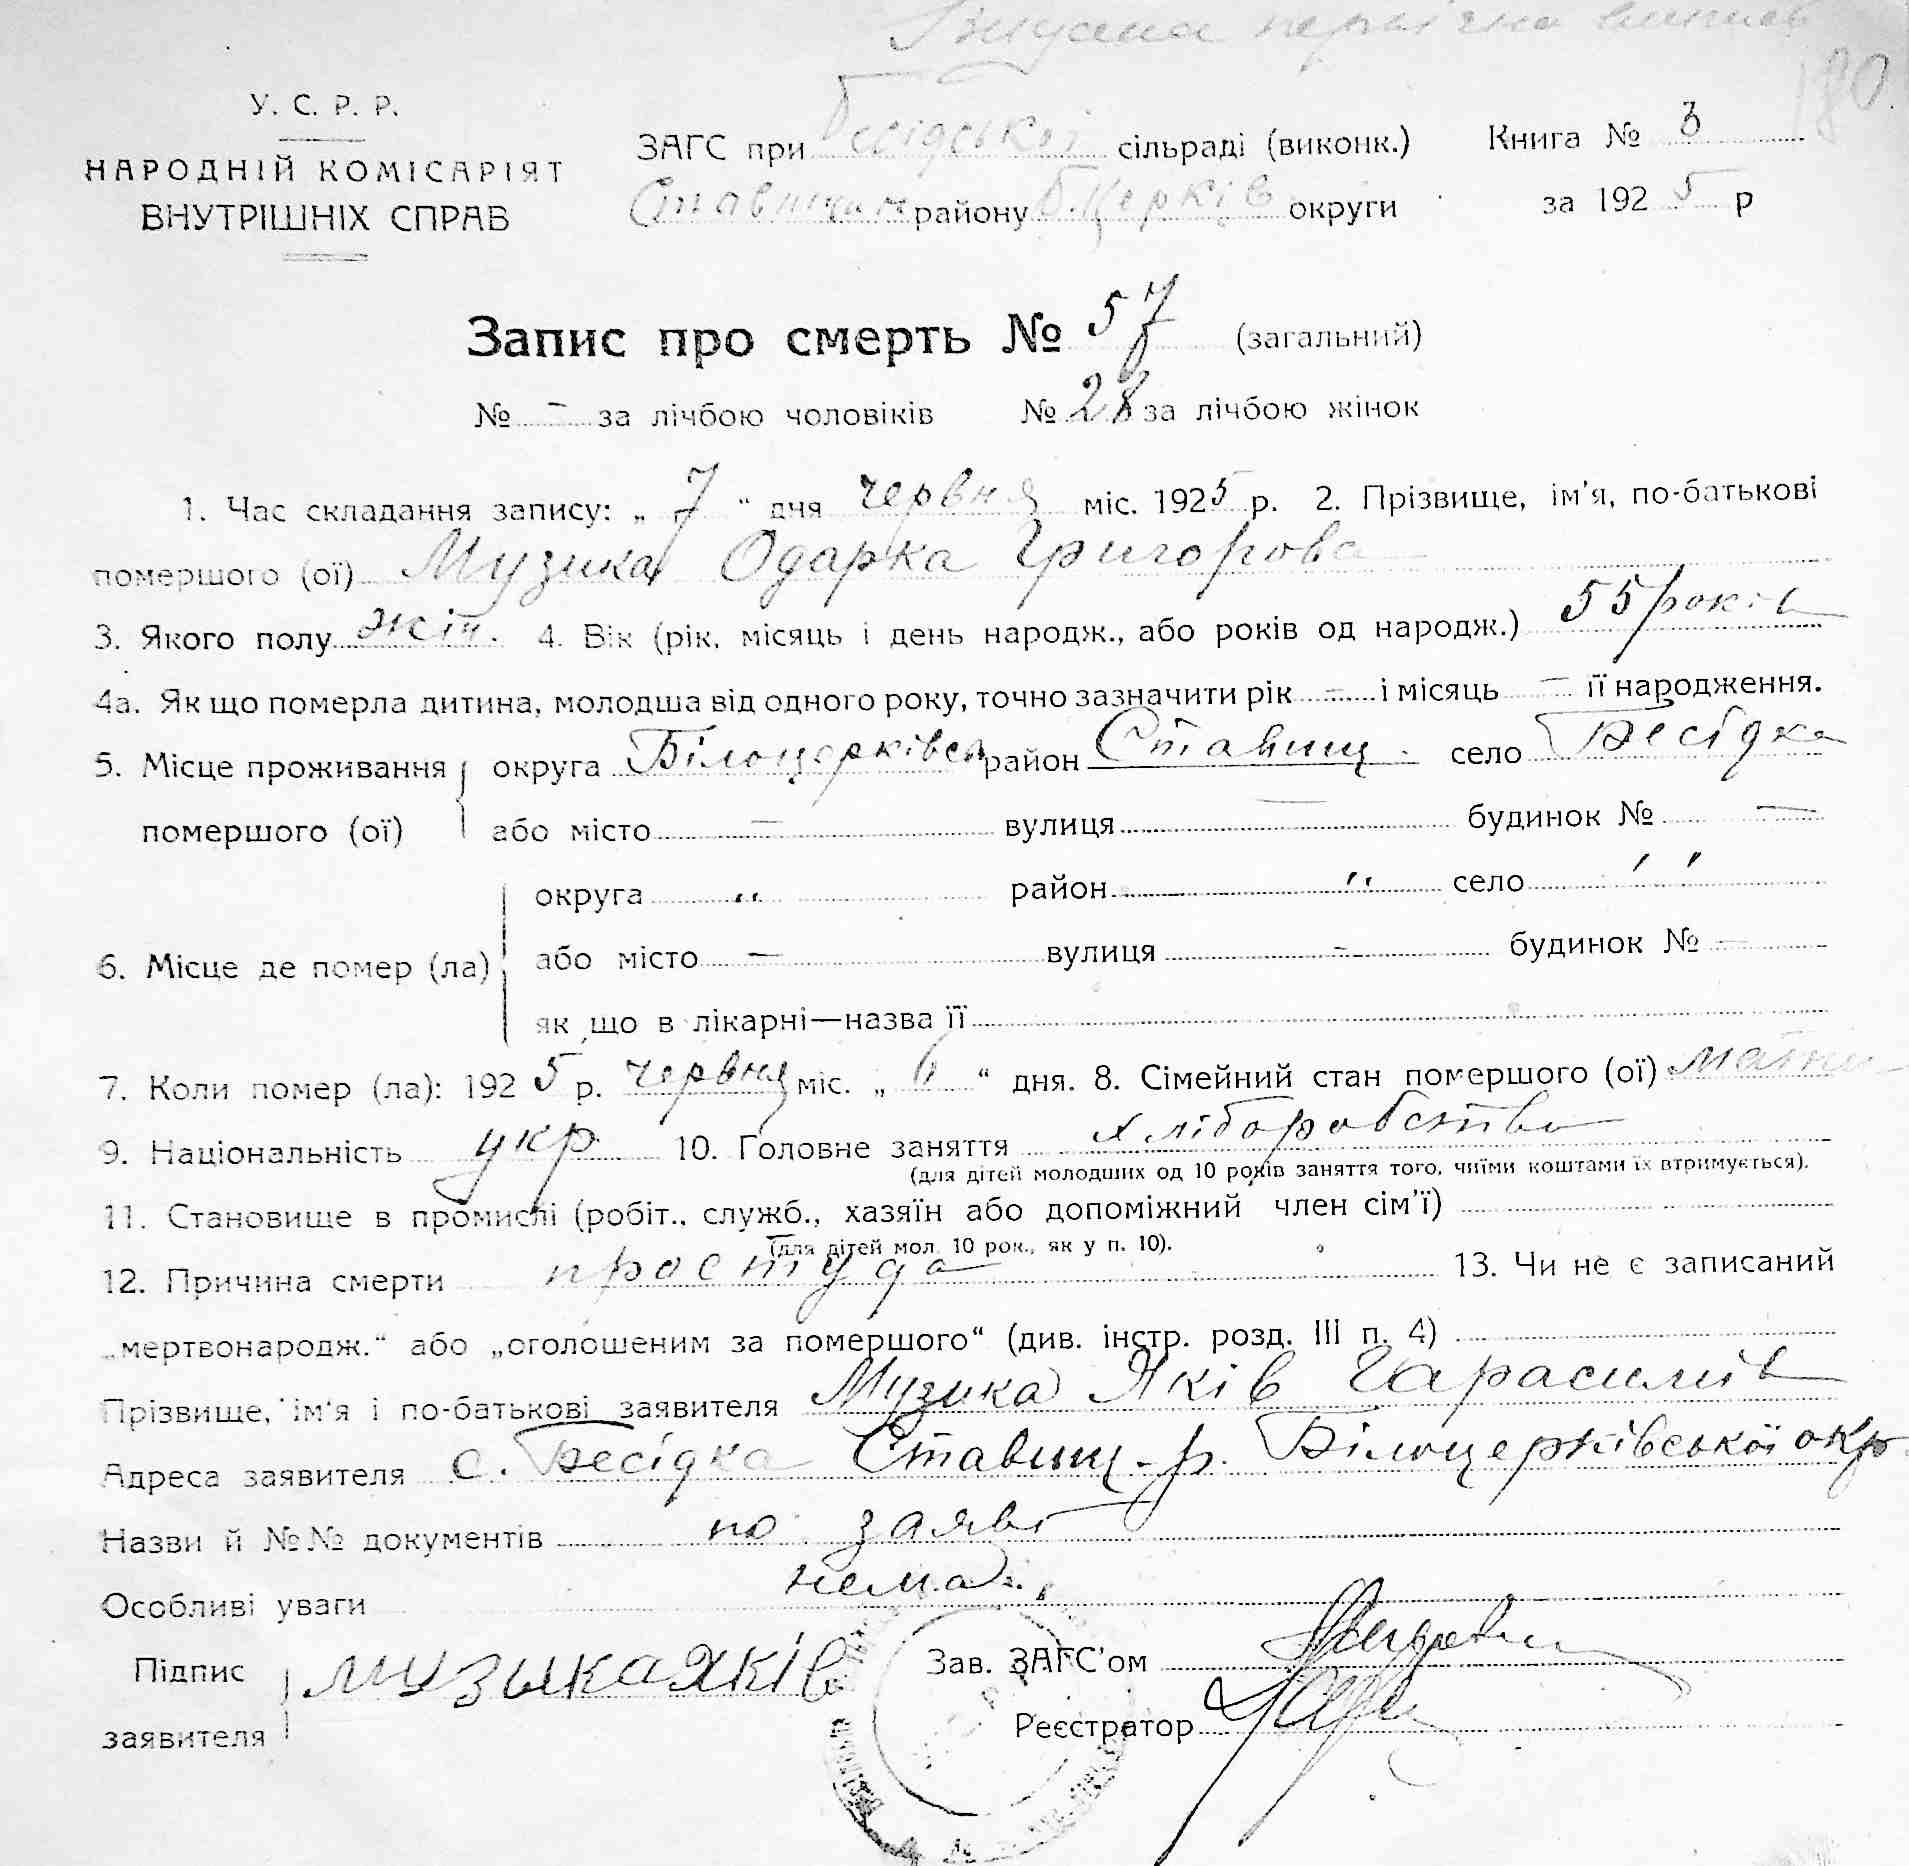 Видана первісна виписка
180
У. С. Р. Р.
НАРОДНІЙ КОМІСАРІЯТ
ВНУТРІШНІХ СПРАВ
ЗАГС при Бесідській сільраді (виконк.) Книга № 3
Ставищан району Б.Церків округи за 1925 р
Запис про смерть № 57 (загальний)
№ - за лічбою чоловіків № 28 за лічбою жінок
1. Час складання запису: „ 7 “ дня червня міс. 1925 р. 2. Прізвище, ім'я, по-батькові
помершого (ої) Музика Одарка Григорова
3. Якого полу жін. 4. Вік (рік, місяць і день народж., або років од народж.) 55 років
4а. Як що померла дитина, молодша від одного року, точно зазначити рік — і місяць — її народження.
5. Місце проживання помершого (ої) округа Білоцерківськ район Ставищ. село Бесідка
або місто — вулиця — будинок № —
6. Місце де помер (ла) округа „ район „ село „
або місто — вулиця — будинок № —
як що в лікарні—назва її
7. Коли помер (ла): 1925 р. червня міс. „ 6 “ дня. 8. Сімейний стан помершого (ої) мати
9. Національність укр. 10. Головне заняття хліборобство
(для дітей молодших од 10 років заняття того, чиїми коштами їх втримується).
11. Становище в промислі (робіт., служб., хазяїн або допоміжний член сім'ї)
(для дітей мол. 10 рок., як у п. 10).
12. Причина смерти простуда 13. Чи не є записаний
„мертвонародж.“ або „оголошеним за помершого“ (див. інстр. розд. III п. 4)
Прізвище, ім'я і по-батькові заявителя Музика Яків Гарасимів
Адреса заявителя с. Бесідка Ставищ. р. Білоцерківської окр.
Назви й №№ документів по заяві
Особливі уваги нема
Підпис заявителя музыка Яків
Зав. ЗАГС'ом
Реєстратор